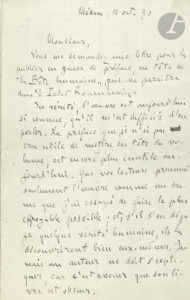 Médan, 16 oct. 90
Monsieur,
Vous me demandez une lettre pour la
publier en guise de préface en tête de
"la Bête humaine", qui va paraître
dans le
En vérité, l'œuvre est aujourd'hui
si connue, qu'il m'est difficile d'en
parler. La préface que je n'ai pas
cru utile de mettre en tête du vo-
lume, est encore plus inutile au-
jourd'hui. Que vos lecteurs prennent
seulement l'œuvre comme un dra-
me que j'ai essayé de faire le plus
effroyable possible; et, s'il s'en déga-
ge quelque vérité humaine, ils la
découvriront bien eux-mêmes. Ja-
mais un auteur ne doit s'expli-
quer, car c'est avouer que son li-
vre est obscur.